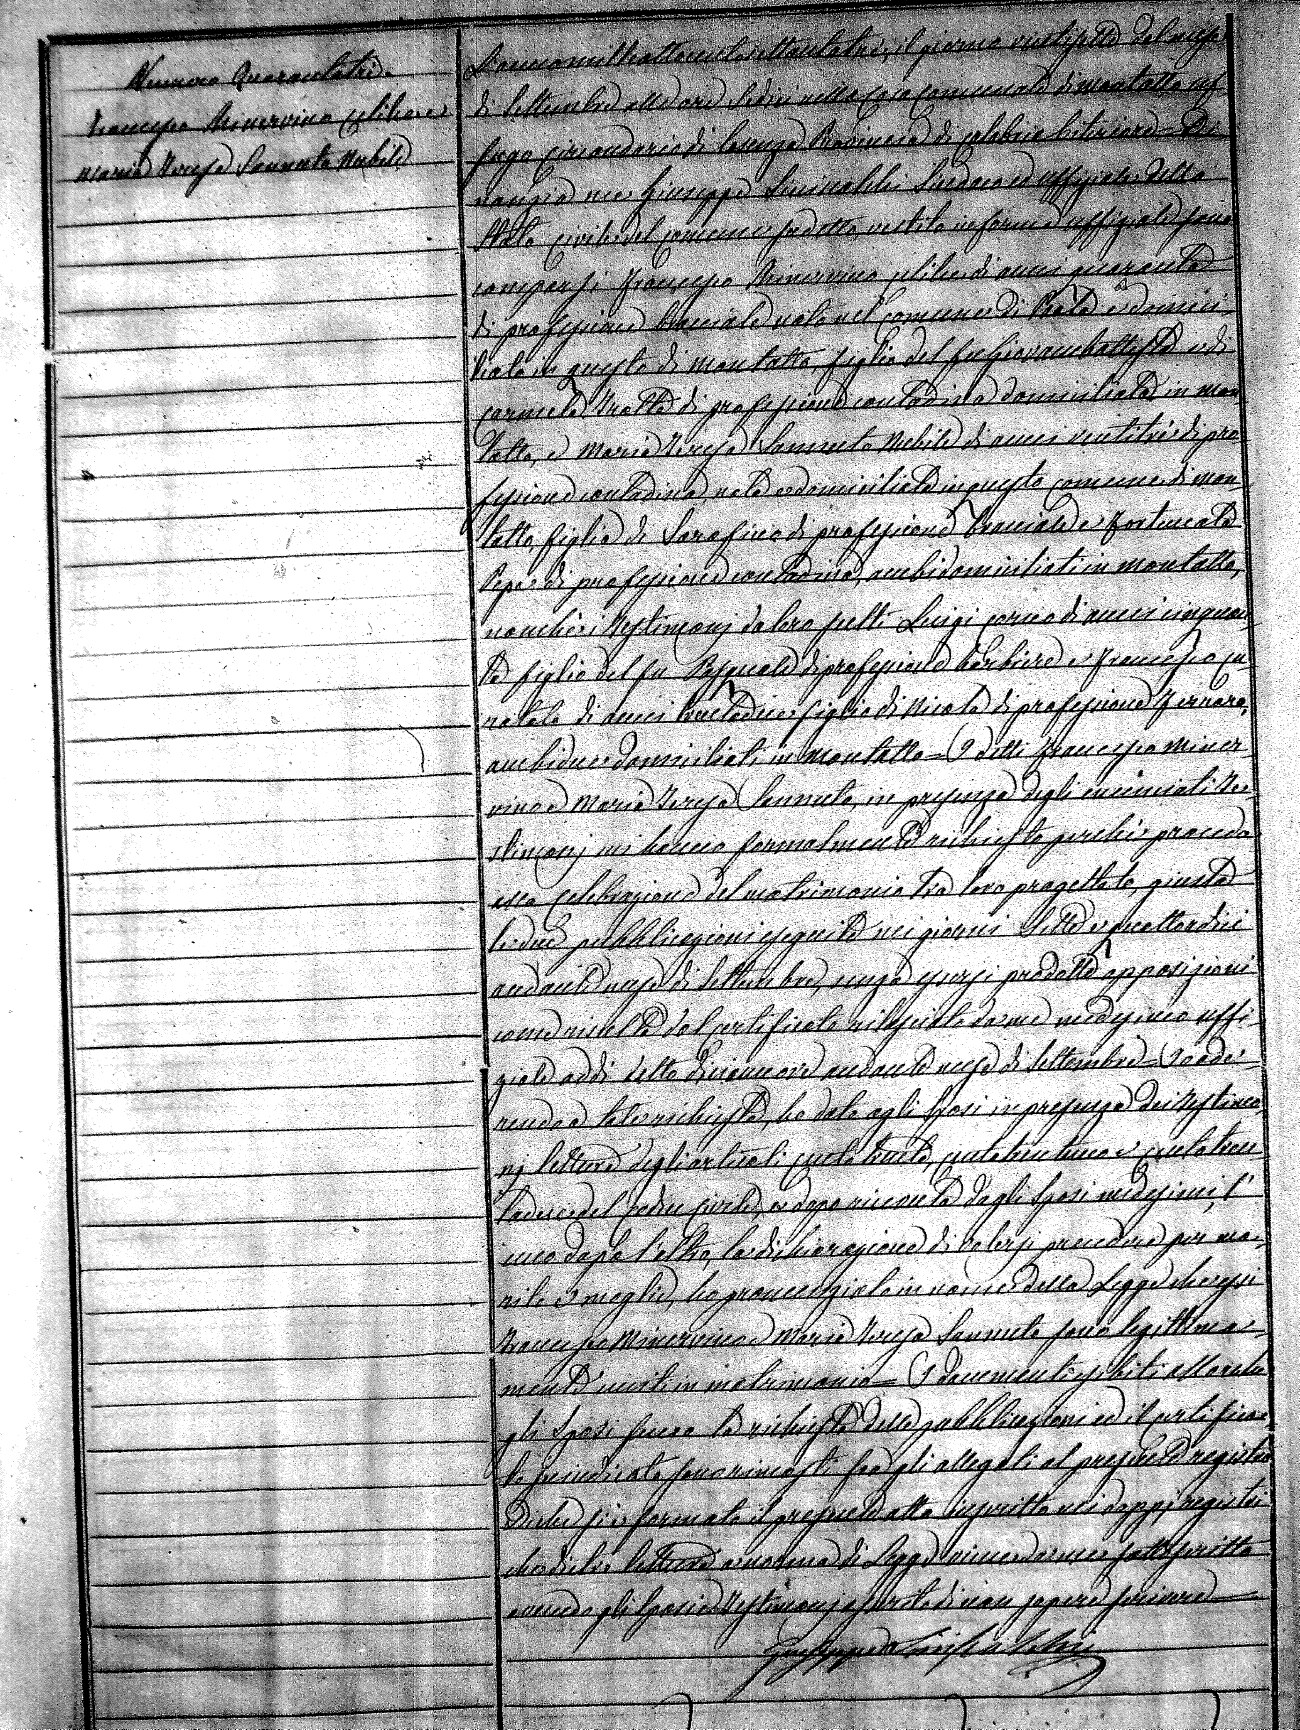 Numero Quarantatre
Francesco Minervino celibe e
Maria Teresa Sannuto Nubile
L'anno mille ottocento settantatre, il giorno ventisette del mese
di Settembre alle ore sedici nella Casa comunale di Montalto Uf
fugo circondario di Cosenza Provincia di Calabria Citeriore = Di
nanzi a me Giuseppe Sindaco ed uffiziale dello
Stato civile del comune suddetto vestito in forma uffiziale sono
comparsi Francesco Minervino celibe di anni quaranta
di professione bracciale nato nel comune di e domici
liato in questo di Montalto, figlio del fu Giovambattista e di
Carmela Trotta di professione contadina domiciliata in Mon
talto, e Maria Teresa Sannuto Nubile di anni ventitre di pro
fessione contadina nata e domiciliata in questo comune di Mon
talto, figlia di Serafino di professione bracciale e Fortunata
Pepe di professione contadina, ambi domiciliati in Montalto,
nonché i Testimonj da loro scelti Luigi di anni cinquan
ta figlio del fu Pasquale di professione barbiere e Francesco
di anni figlio di Nicola di professione Ferraro,
ambidue domiciliati in Montalto = I detti Francesco Miner
vino e Maria Teresa Sannuto, in presenza degli enunciati Te
stimonj mi hanno formalmente richiesto perché proceda
alla celebrazione del matrimonio tra loro progettato, giusta
le due pubblicazioni eseguite nei giorni sette e quattordici
andante mese di Settembre, senza essersi prodotte opposizioni
come risulta dal certificato rilasciato da me medesimo uffi
ziale addì detto diciannove andante mese di Settembre = Io ade
rendo a tale richiesta, ho dato agli Sposi in presenza dei Testimo
nj lettura degli articoli centotrenta, centotrentuno e centotren
tadue del Codice Civile, e dopo ricevuta dagli Sposi medesimi, l'
uno dopo l'altro, la dichiarazione di volersi prendere per ma
rito e moglie, ho pronunziato in nome della Legge che essi
Francesco Minervino e Maria Teresa Sannuto sono legittima
mente uniti in matrimonio = I documenti esibiti
gli Sposi sono la richiesta delle pubblicazioni ed il certifica
to sono rimasti fra gli allegati al presente registro
Di che si è formato il presente atto inscritto nei doppi registri
che dietro lettura a norma di Legge viene da me sottoscritto
avendo gli Sposi e Testimonj asserito di non sapere scrivere
Giuseppe